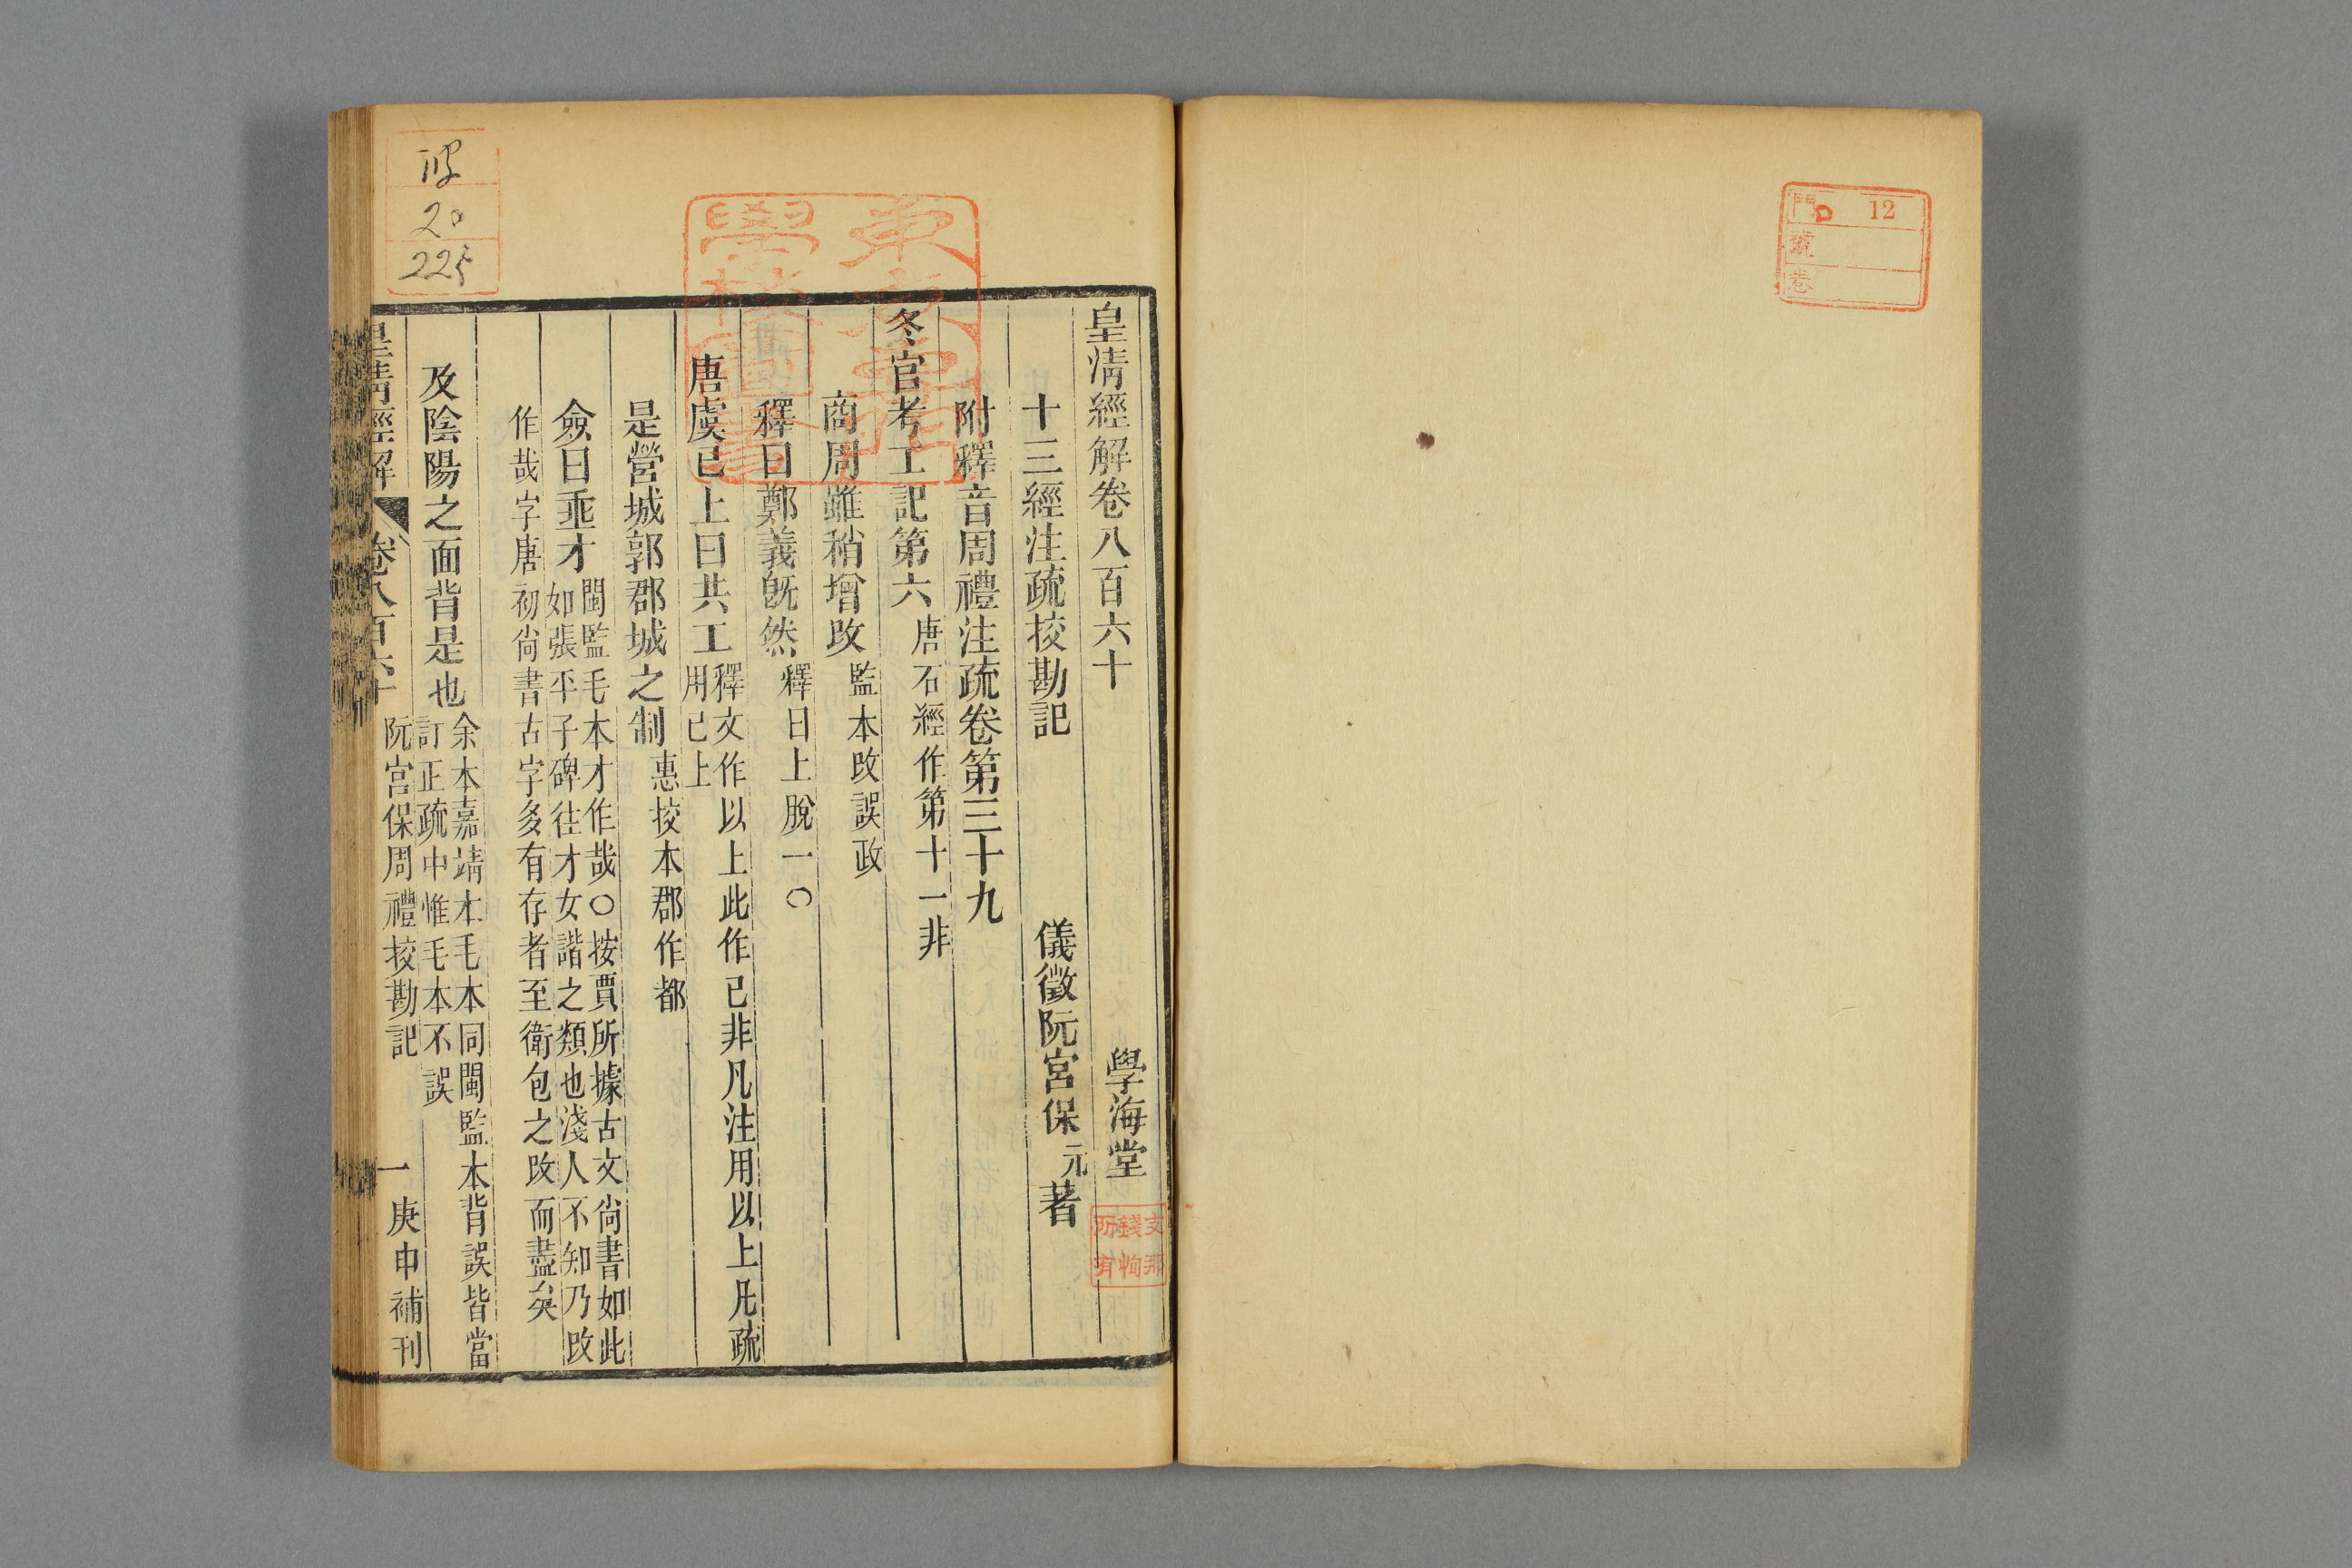 門 12
號
卷
皇清經解卷八百六十 學海堂
支那
錢恂
所有
十三經注疏挍勘記 儀徵阮宮保元著
附釋音周禮注疏卷第三十九
冬官考工記第六 唐石經作第十一非
商周雖稍增改 監本改誤政
釋曰鄭義既然 釋曰上脫一○
唐虞已上曰共工 釋文作以上此作已非凡注用以上凡疏
用已上
是營城郭郡城之制 惠挍本郡作都
僉曰垂才 閩監毛本才作哉○按賈所據古文尚書如此
如張平子碑往才女諧之類也淺人不知乃改
作哉字唐初尚書古字多有存者至衛包之改而盡矣
及陰陽之面背是也 余本嘉靖本毛本同閩監本背誤皆當
訂正疏中惟毛本不誤
皇清經解 卷八百六十 阮宮保周禮挍勘記 一 庚申補刊
20
225